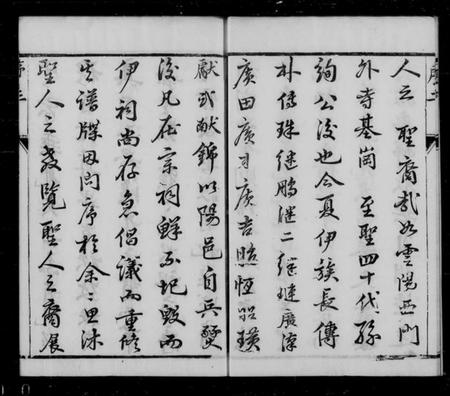 人之聖裔哉如雲陽西門
外寺基崗至聖四十代孫
詢公後也今夏伊族長傳
朴傳珠繼鵬繼二繼璉廣深
廣田廣才廣吉照恒昭璜
獻試猷錦以陽邑自兵燹
後凡在宗祠鮮不圯毀而
伊祠尚存急倡議而重修
其譜牒因問序於余余思沐
聖人之教覽聖人之裔展
序三